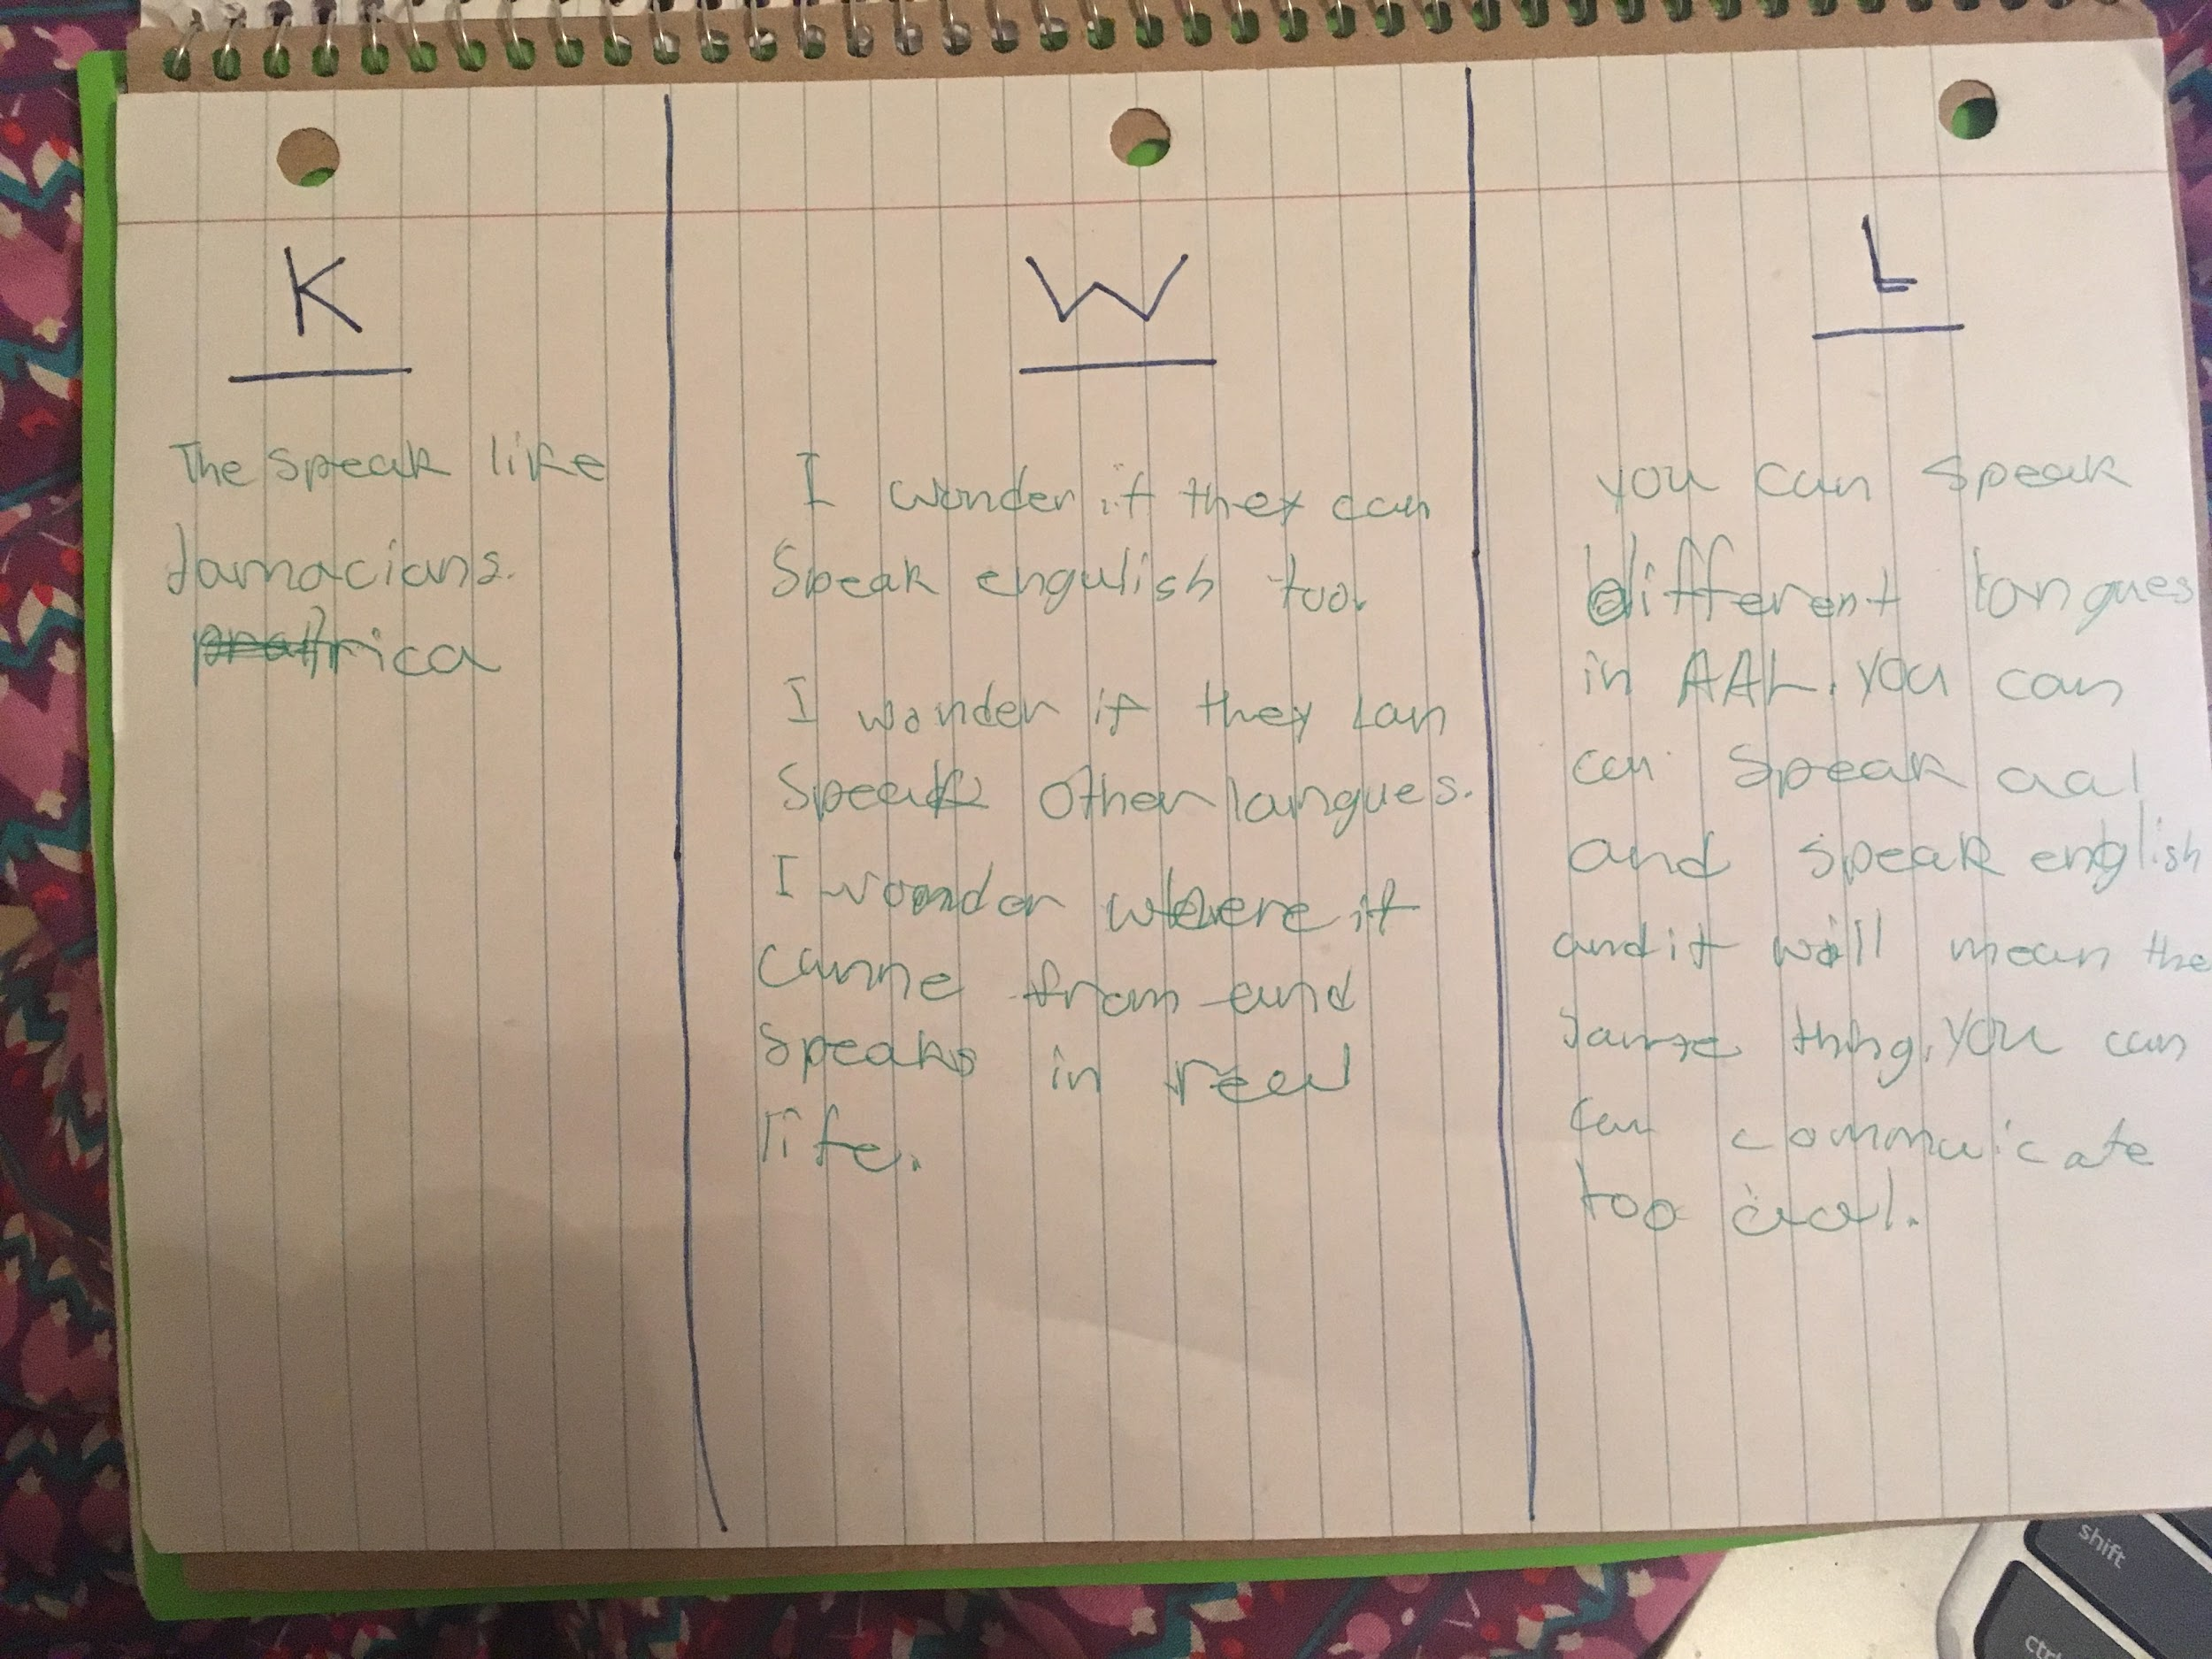 K
The speak like
Jamacians.
rica
W
I wonder if they can
Speak engulish too.
I wonder if they can
Speak other langues.
I wonder where it
came from and
Speaks in real
life.
L
you can speak
different langues
in AAL. you can
can speak aal
and speak english
and it will mean the
same thing. you can
can commuicate
too aal.
shift
ctrl